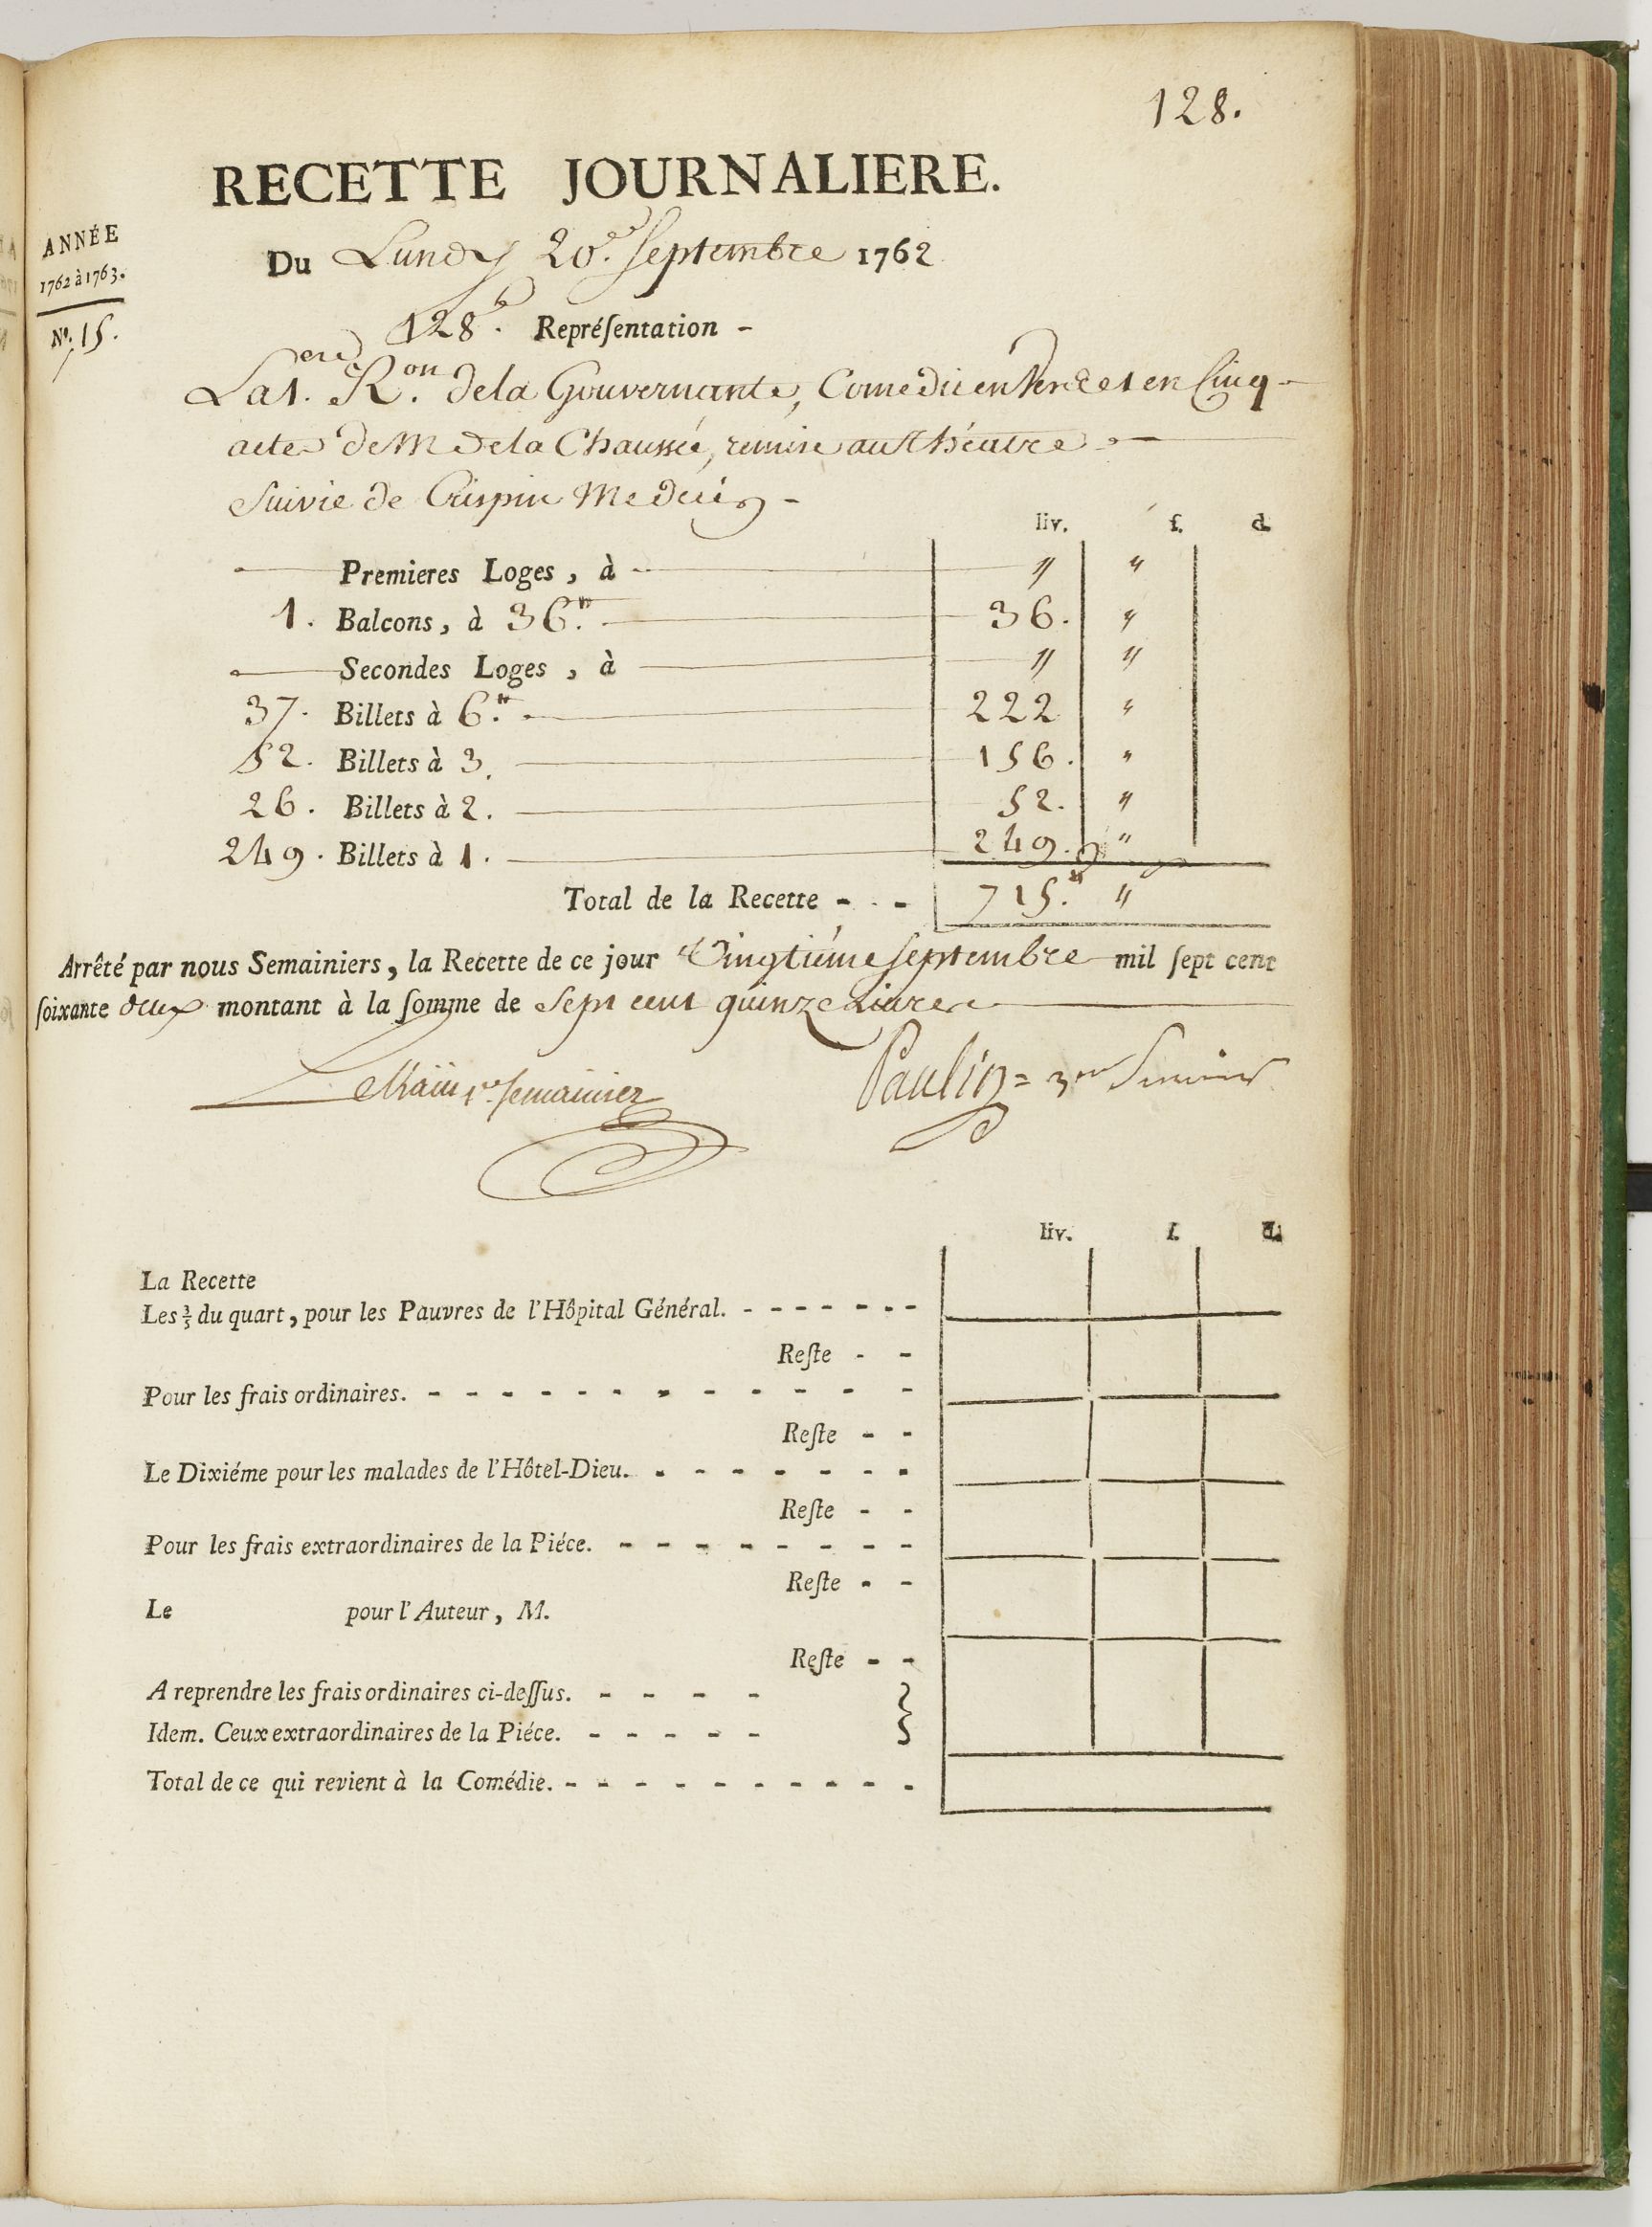 128.
RECETTE JOURNALIERE.
ANNÉE
1762 à 1763.
Nº. 15.
Du Lundy 20.e Septembre 1762
128.e Repréſentation -
La 1.ere R.on de la Gouvernante, Comedie en Vers et en Cinq
actes de M de la Chaussée, remise au Théatre
Suivie de Crispin Medecin -
liv. ſ. d.
Premieres Loges, à " "
1. Balcons, à 36.tt 36. "
Secondes Loges, à " "
37. Billets à 6.tt 222 "
52. Billets à 3. 156. "
26. Billets à 2. 52. "
249. Billets à 1. 249. "
Total de la Recette - - - 715.tt "
Arrêté par nous Semainiers, la Recette de ce jour Vingtiéme Septembre mil ſept cent
ſoixante deux montant à la ſomme de Sept cent quinze Livres
Lekain 1.er Semainier
Paulin = 3me Semainier
liv. ſ. d.
La Recette
Les 3/5 du quart, pour les Pauvres de l'Hôpital Général. - - - - - - -
Reſte - -
Pour les frais ordinaires. - - - - - - - - - - - -
Reſte - -
Le Dixiéme pour les malades de l'Hôtel-Dieu. - - - - - - -
Reſte - -
Pour les frais extraordinaires de la Piéce. - - - - - - - -
Reſte - -
Le pour l'Auteur, M.
Reſte - -
A reprendre les frais ordinaires ci-deſſus. - - - -
Idem. Ceux extraordinaires de la Piéce. - - - - -
Total de ce qui revient à la Comédie. - - - - - - - - - -